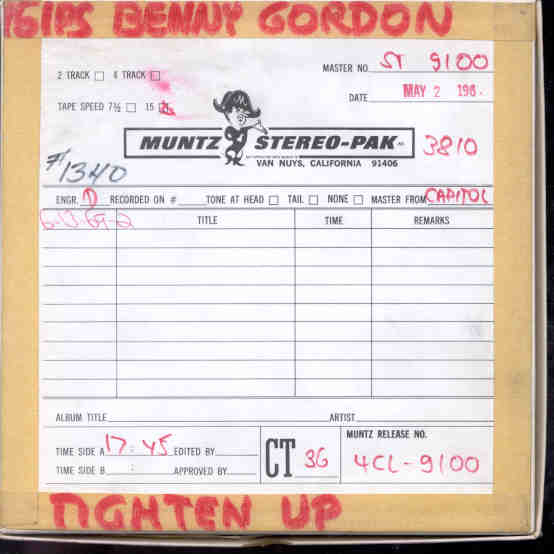 15IPS BENNY GORDON
2 TRACK 4 TRACK
MASTER NO. ST 9100
TAPE SPEED 7½ 15
DATE MAY 2 196
MUNTZ STEREO-PAK INC.
VAN NUYS, CALIFORNIA 91406
3810
#1340
ENGR. D RECORDED ON # TONE AT HEAD TAIL NONE MASTER FROM CAPITOL
6-13-69-2
TITLE TIME REMARKS
ALBUM TITLE ARTIST
TIME SIDE A 17:45 EDITED BY
TIME SIDE B : APPROVED BY
CT 36
MUNTZ RELEASE NO.
4CL-9100
TIGHTEN UP